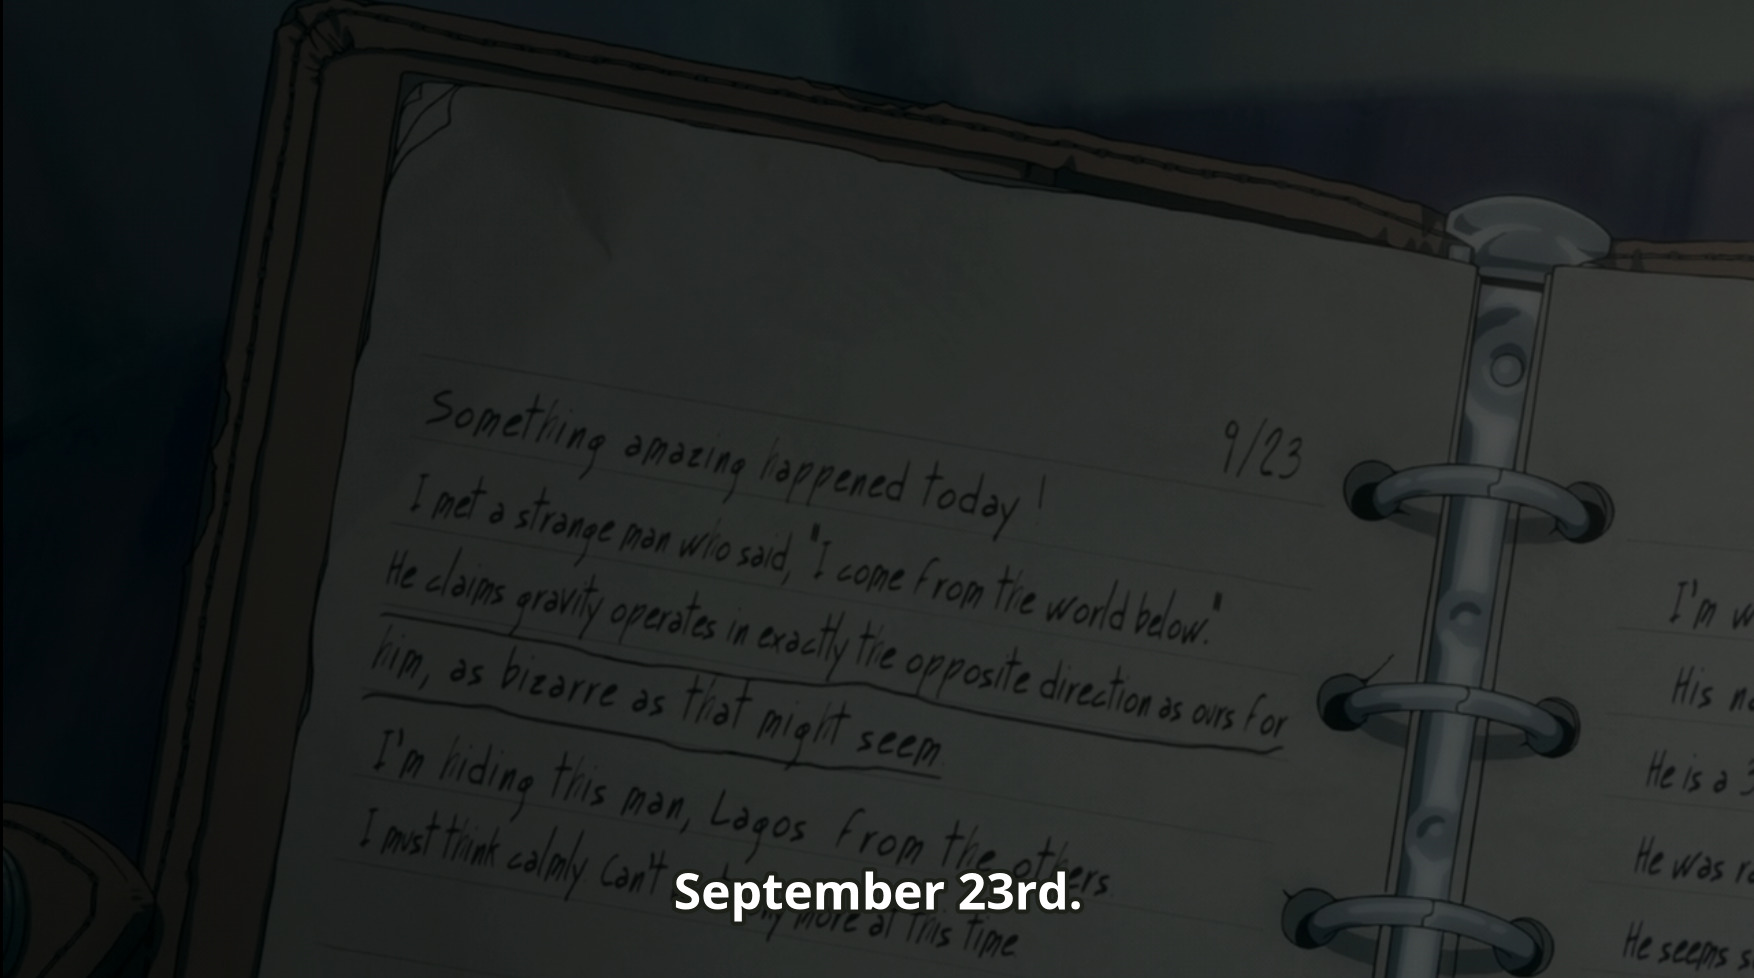 9/23
Something amazing happened today!
I met a strange man who said, "I come from the world below."
He claims gravity operates in exactly the opposite direction as ours for
him, as bizarre as that might seem.
I'm hiding this man, Lagos from the others.
I must think calmly. Can't more at this time
I'm
His
He is a
He was
He seems
September 23rd.